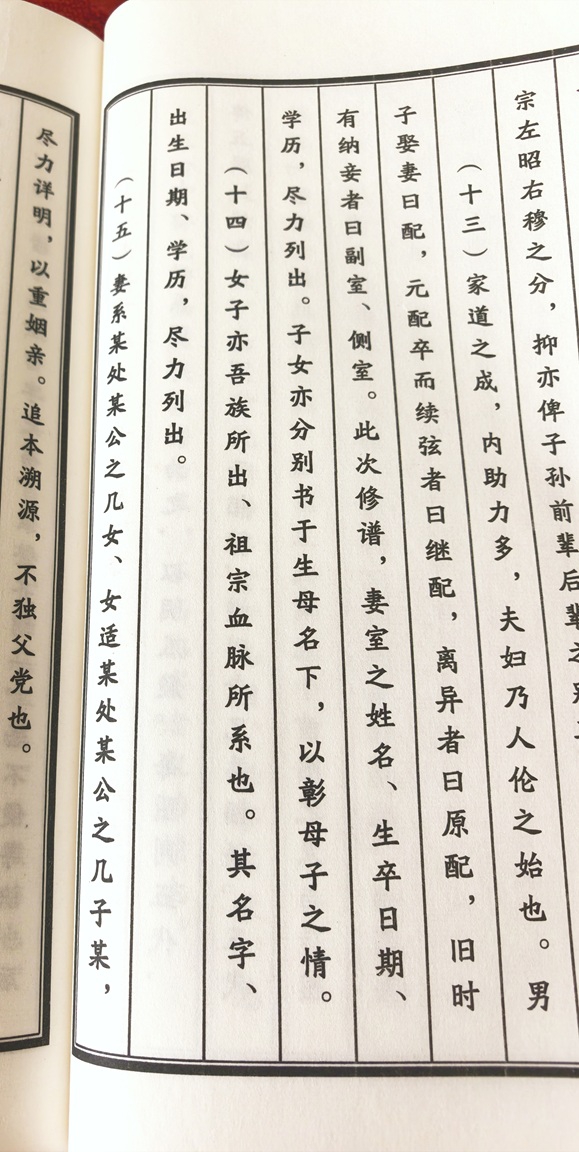 宗左昭右穆之分，抑亦俾子孙前辈后辈之
（十三）家道之成，内助力多，夫妇乃人伦之始也。男
子娶妻曰配，元配卒而续弦者曰继配，离异者曰原配，旧时
有纳妾者曰副室、侧室。此次修谱，妻室之姓名、生卒日期、
学历，尽力列出。子女亦分别书于生母名下，以彰母子之情。
（十四）女子亦吾族所出、祖宗血脉所系也。其名字、
出生日期、学历，尽力列出。
（十五）妻系某处某公之几女、女适某处某公之几子某，
尽力详明，以重姻亲。追本溯源，不独父党也。